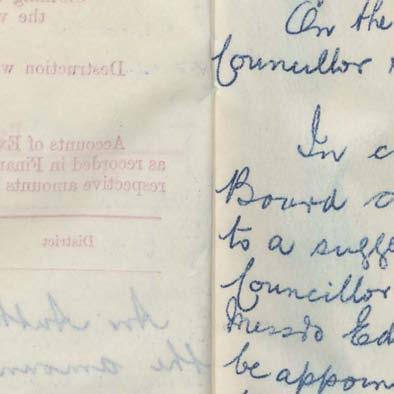 the w
Destruction w
Accounts of Ex
as recorded in Finan
respective amounts
District
An Auth
the amoun
On the
Councillor
In c
Board
to a sugge
Councillor
Messrs Ed
be appoin